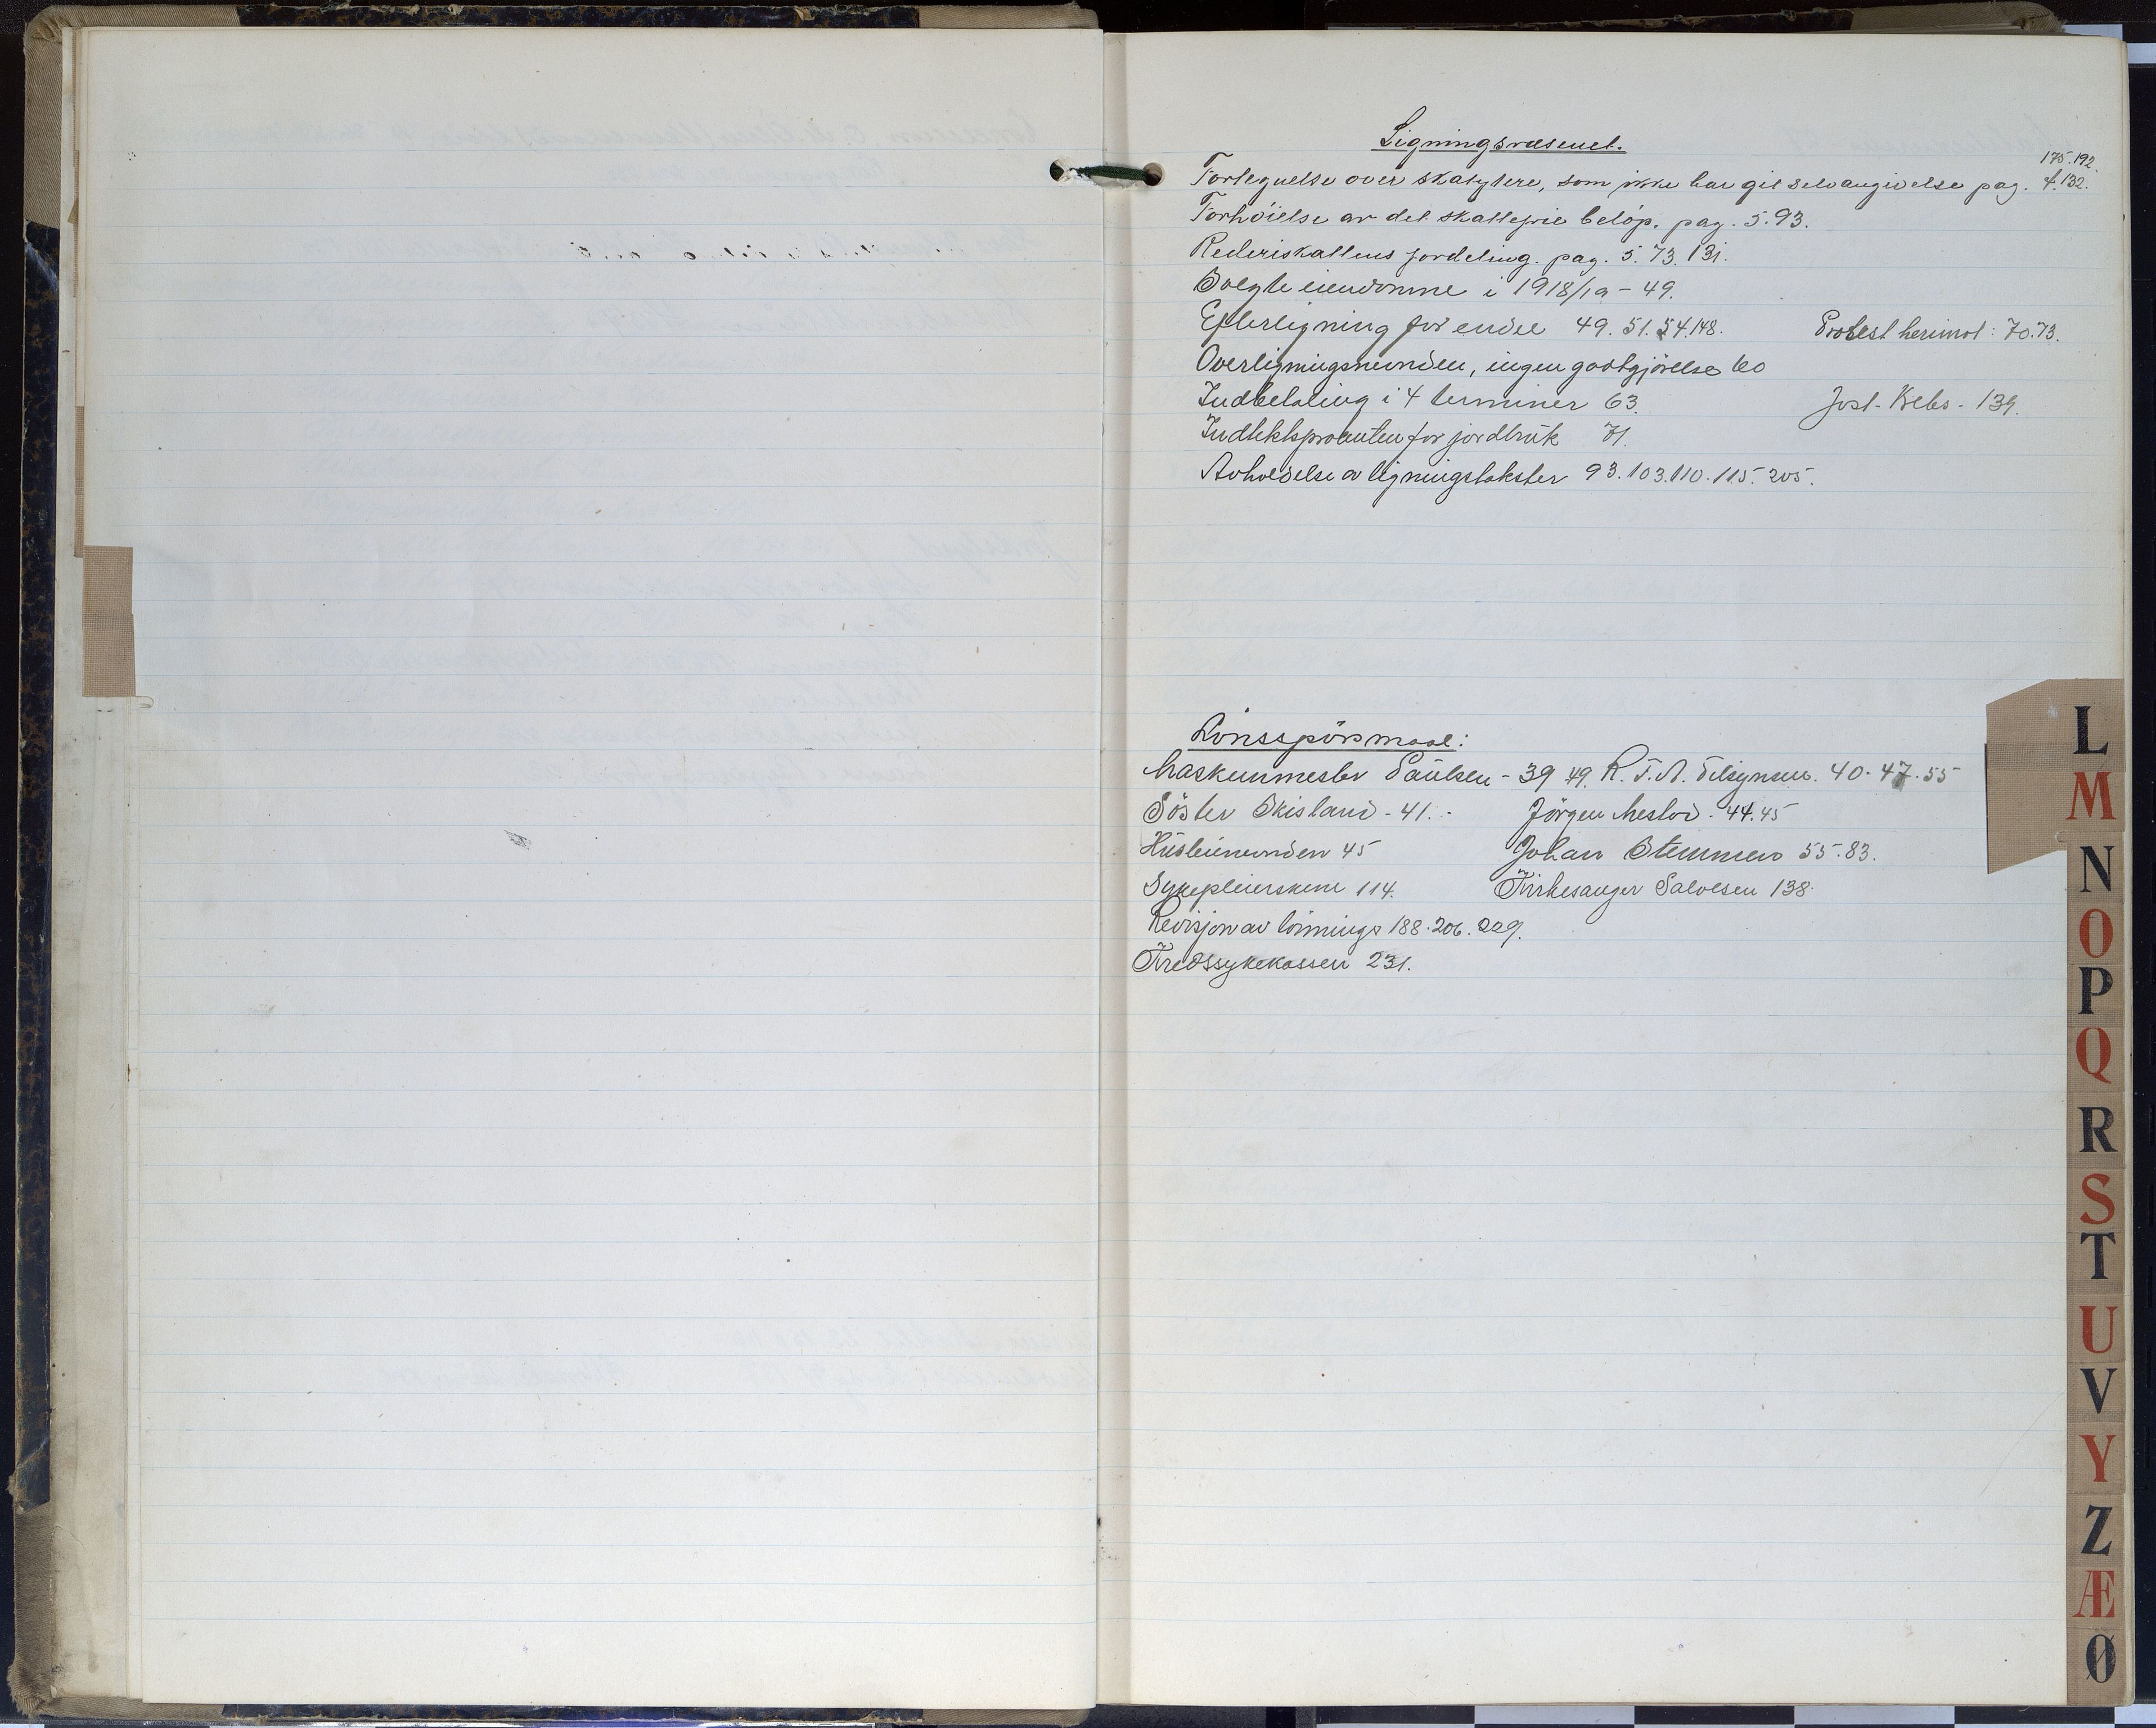 Ligningsvæsenet.
175.192.
Fortegnelse over skatytere, som ikke har git selvangivelse pag. 4.132.
Forhöielse av det skattefrie belöp. pag. 5.93.
Rederiskattens fordeling. pag. 5. 73. 131.
Solgte eiendomme i 1918/19 - 49.
Efterligning for endel 49. 51. 54. 148. Protest herimot: 70.73.
Overligningsnevnden, ingen godtgjörelse 60
Indbetaling i 4 terminer 63. Jost. - 139.
Indtektsprocenten for jordbruk 71.
Avholdelse av ligningstakster 93. 103. 110. 115. 205.
Lönsspörsmaal:
Maskinmester Paulsen - 39 49. R. F. A. Tilsynsm. 40. 47. 55
Söster Skisland - 41. - Jörgen Mesloi. 44. 45
Husleienevnden 45 Johan Stemmen 55. 83.
Sykepleierskene 114. Kirkesanger Salvesen 138.
Revisjon av lönninger 188. 206. 209.
Kredssykekassen 231.
L
M
N
O
P
Q
R
S
T
U
V
Y
Z
Æ
Ø